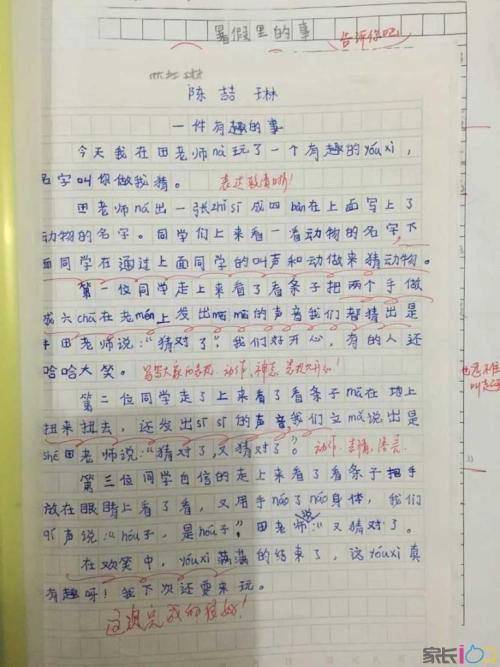 暑假里的事 告诉你吧
陈喆琳
一件有趣的事
今天我在田老师nà玩了一个有趣的yóuxì,
名字叫你做我猜。 表达激情哟!
田老师ná出一张zhǐsī成四bàn在上面写上了
动物的名字。同学们上来看一看动物的名字下
面同学在通过上面同学的叫声和动做来猜动物。
第一位同学走上来看了看条子把两个手做
成六chā在老mén上发出mōmō的声音我们都猜出是
牛田老师说:“猜对了”,我们好开心,有的人还
哈哈大笑。 动作,神态
第二位同学走了上来看了看条子mǎ在地上
扭来扭去,还发出sīsī的声音我们立mǎ说出是
shé田老师说:“猜对了,又猜对了”。 动作,表情,语言
第三位同学自信的走上来看了看条子把手
放在眼睛上看了看,又用手náo了náo身体,我们
齐声说:“hóu子,是hóu子”,田老师说:“又猜对了。
在欢笑中,yóuxì满满的结束了,这yóuxì真
有趣呀!我下次还要来玩。
这次完成的很好!
家长100